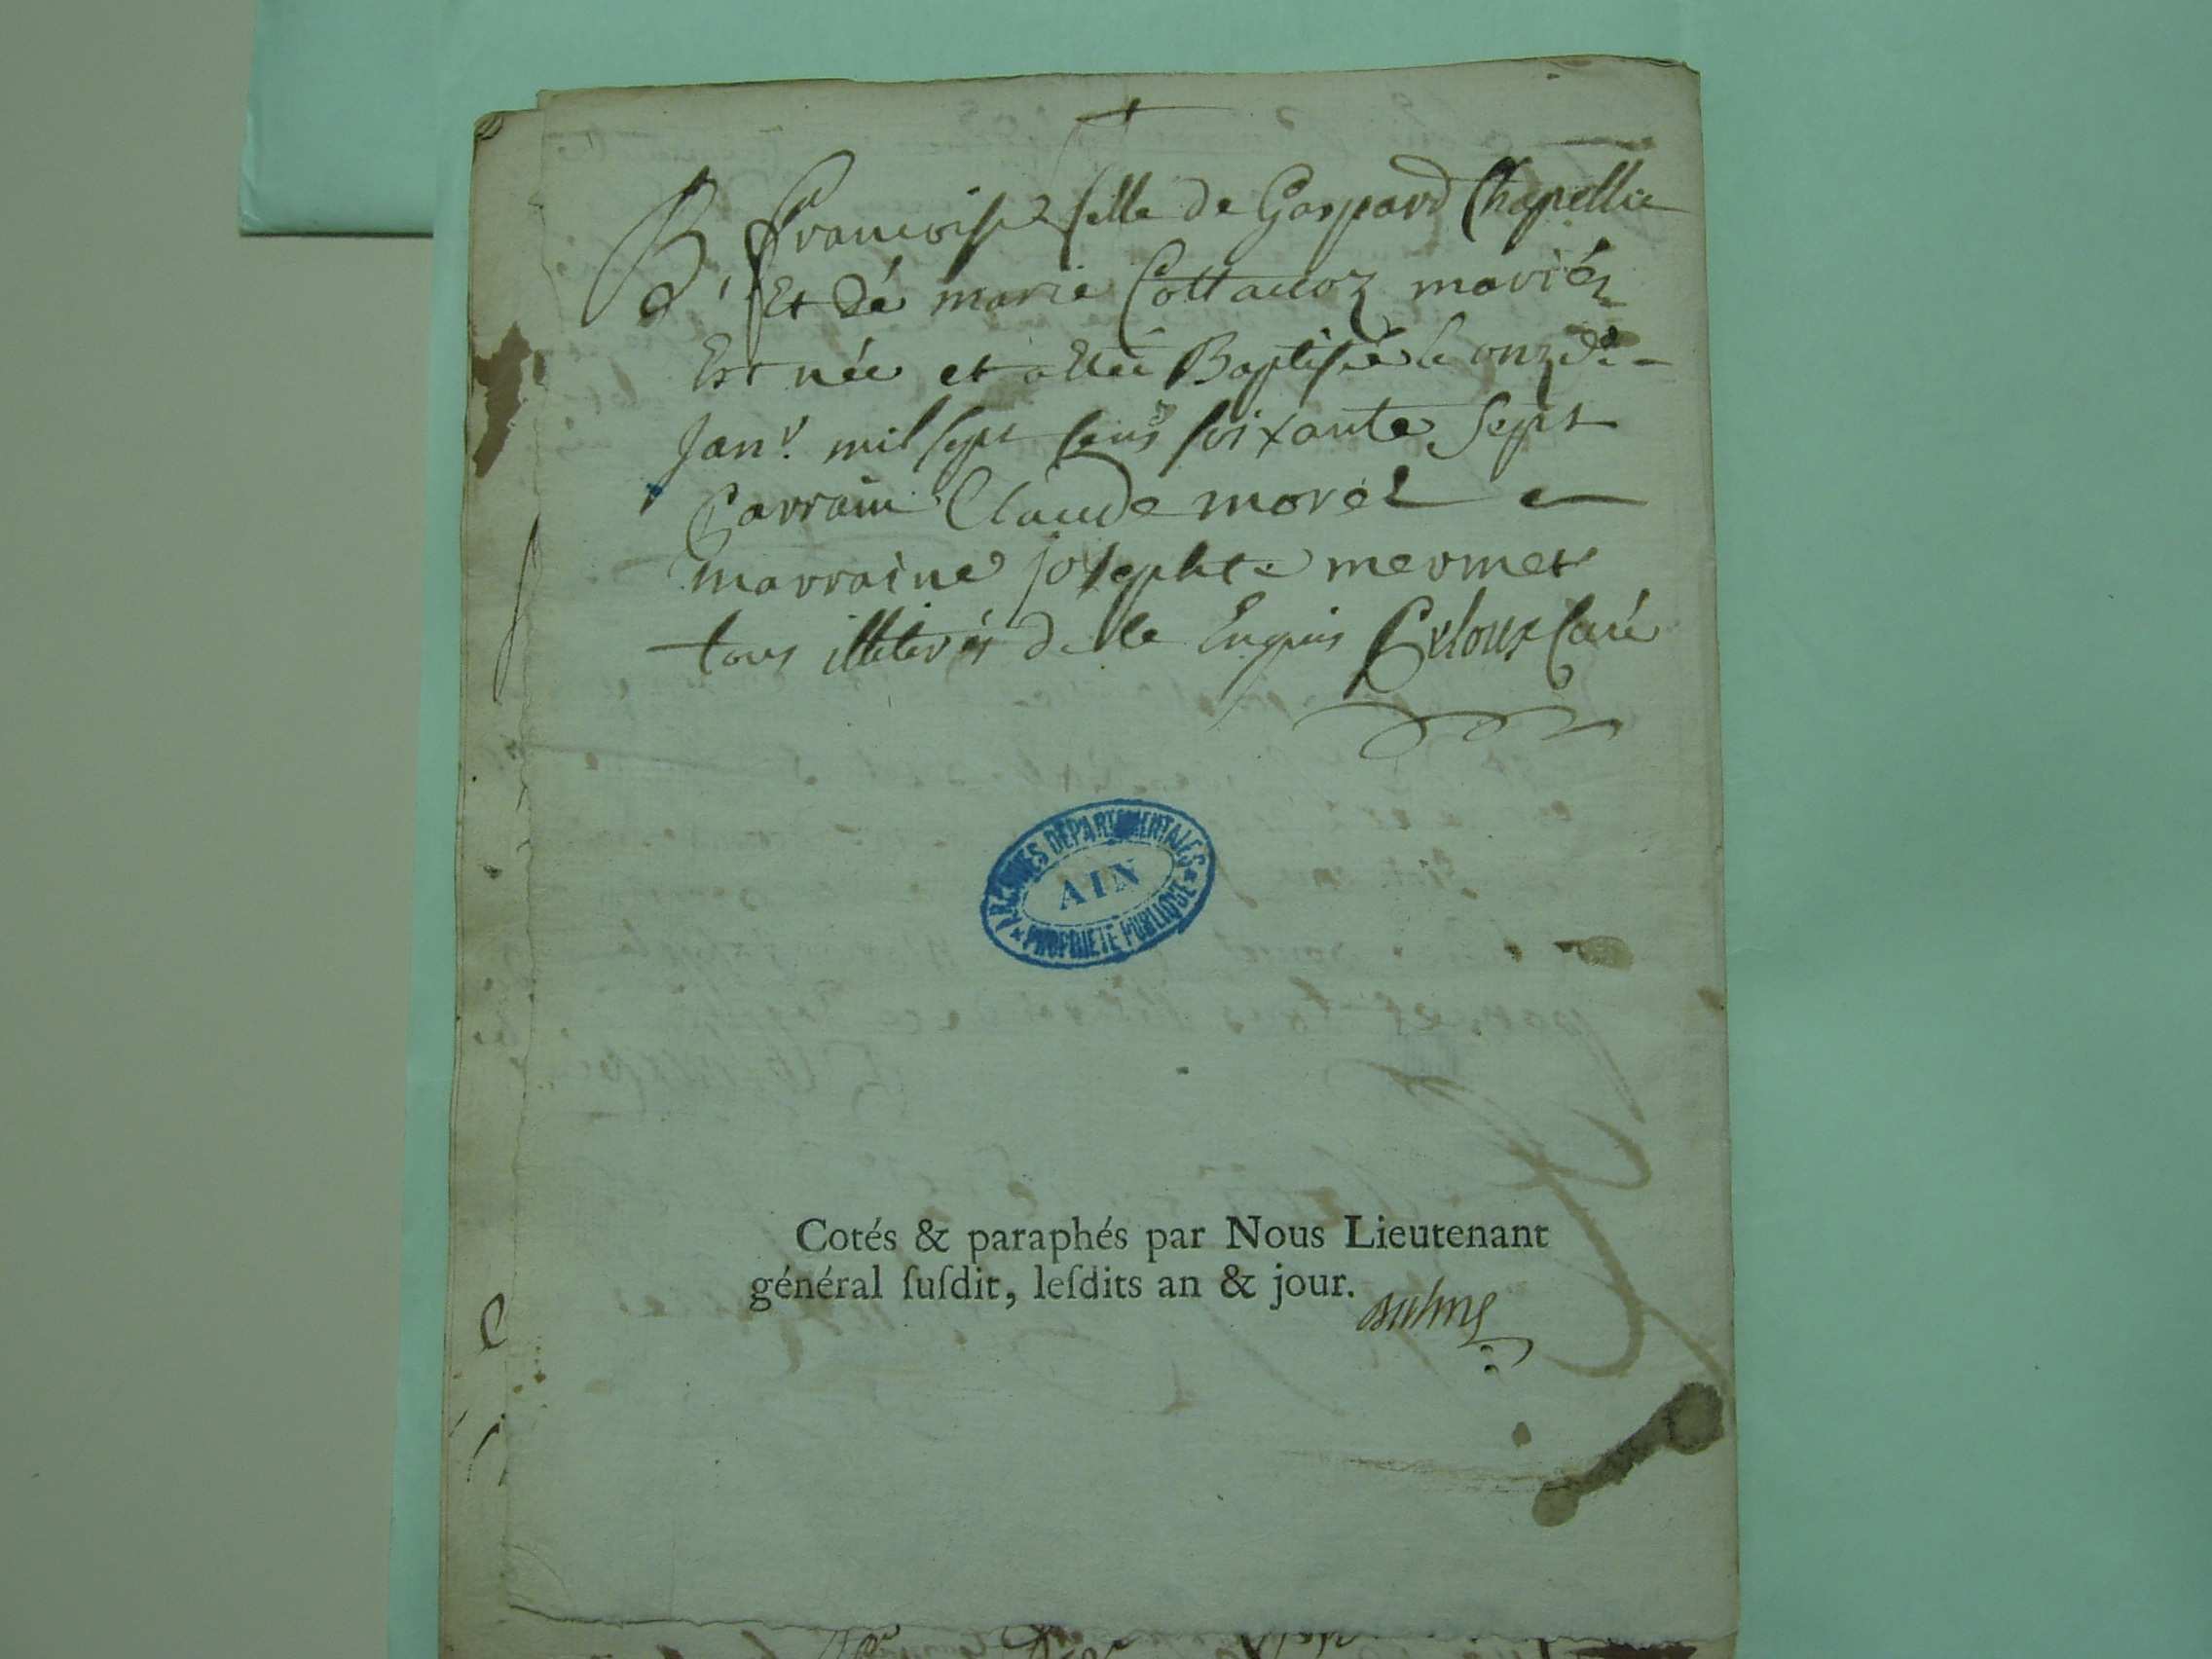 B.
Francoise fille de Gaspard Chapellie
Et de marie Cottavoz mariés
Est née et a Eté Baptisée le onze
Janv. mil sept cens soixante Sept
Parrain Claude morel
marraine josephte mermet
tous illiterés de ce Enquis curé
ARCHIVES DÉPARTEMENTALES
AIN
PROPRIÉTÉ PUBLIQUE
Cotés & paraphés par Nous Lieutenant
général ſuſdit, leſdits an & jour.